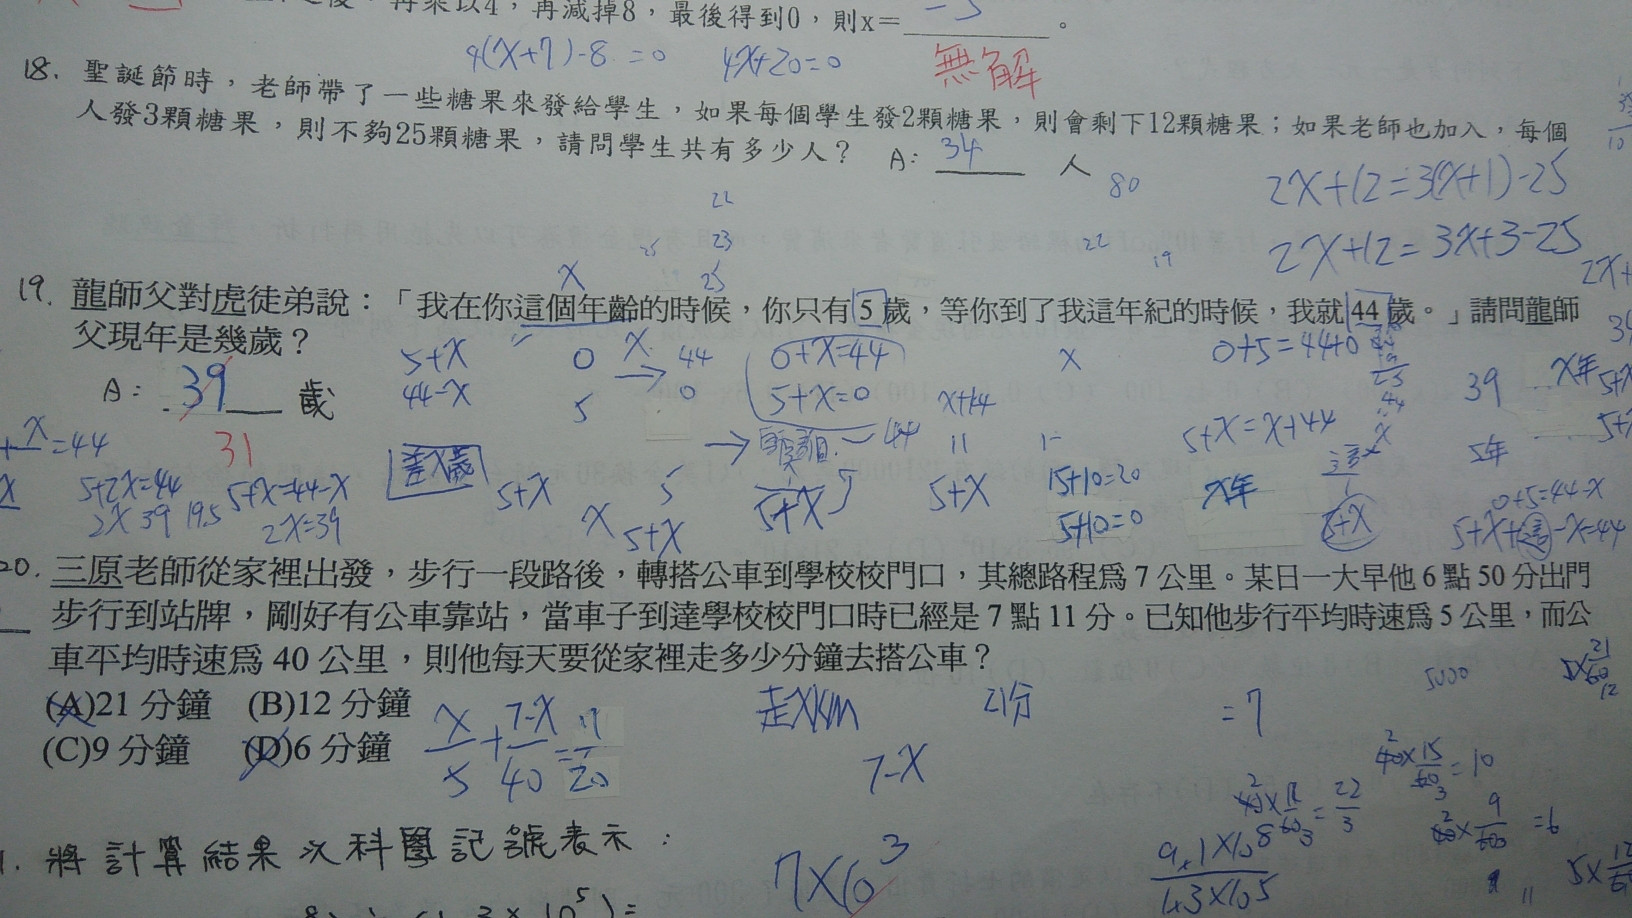 再乘以4，再減掉8，最後得到0，則x=-5。
4(X+7)-8=0 4X+20=0 無解
18. 聖誕節時，老師帶了一些糖果來發給學生，如果每個學生發2顆糖果，則會剩下12顆糖果；如果老師也加入，每個
人發3顆糖果，則不夠25顆糖果，請問學生共有多少人？ A: 34 人
80
2X+12=3(X+1)-25
2X+12=3X+3-25
22
23
25
22
19
X
19. 龍師父對虎徒弟說：「我在你這個年齡的時候，你只有5歲，等你到了我這年紀的時候，我就44歲。」請問龍師
父現年是幾歲？
A: 39 歲
31
5+X
44-X
0 X 44
→ 0
5
0+X=44
5+X=0
X
0+5=44+0
39
X年
5年
X+14
11
5+X
5+X=X+44
X年
X=44
5+2X=44
2X 39 19.5
5+X=44-X
2X=39
差X歲
5+X
X
5
5+X
→
44
5+X
15+10=20
5+10=0
5+X
0+5=44-X
20. 三原老師從家裡出發，步行一段路後，轉搭公車到學校校門口，其總路程為 7 公里。某日一大早他 6 點 50 分出門
步行到站牌，剛好有公車靠站，當車子到達學校校門口時已經是 7 點 11 分。已知他步行平均時速為 5 公里，而公
車平均時速為 40 公里，則他每天要從家裡走多少分鐘去搭公車？
(A)21 分鐘 (B)12 分鐘
(C)9 分鐘 (D)6 分鐘
走XKM 21分 =7
7-X
5000
5×21/60
40×15/60=10
=22/3
=6
將計算結果以科學記號表示：
7×10³
9.1×10⁸
1.3×10⁵